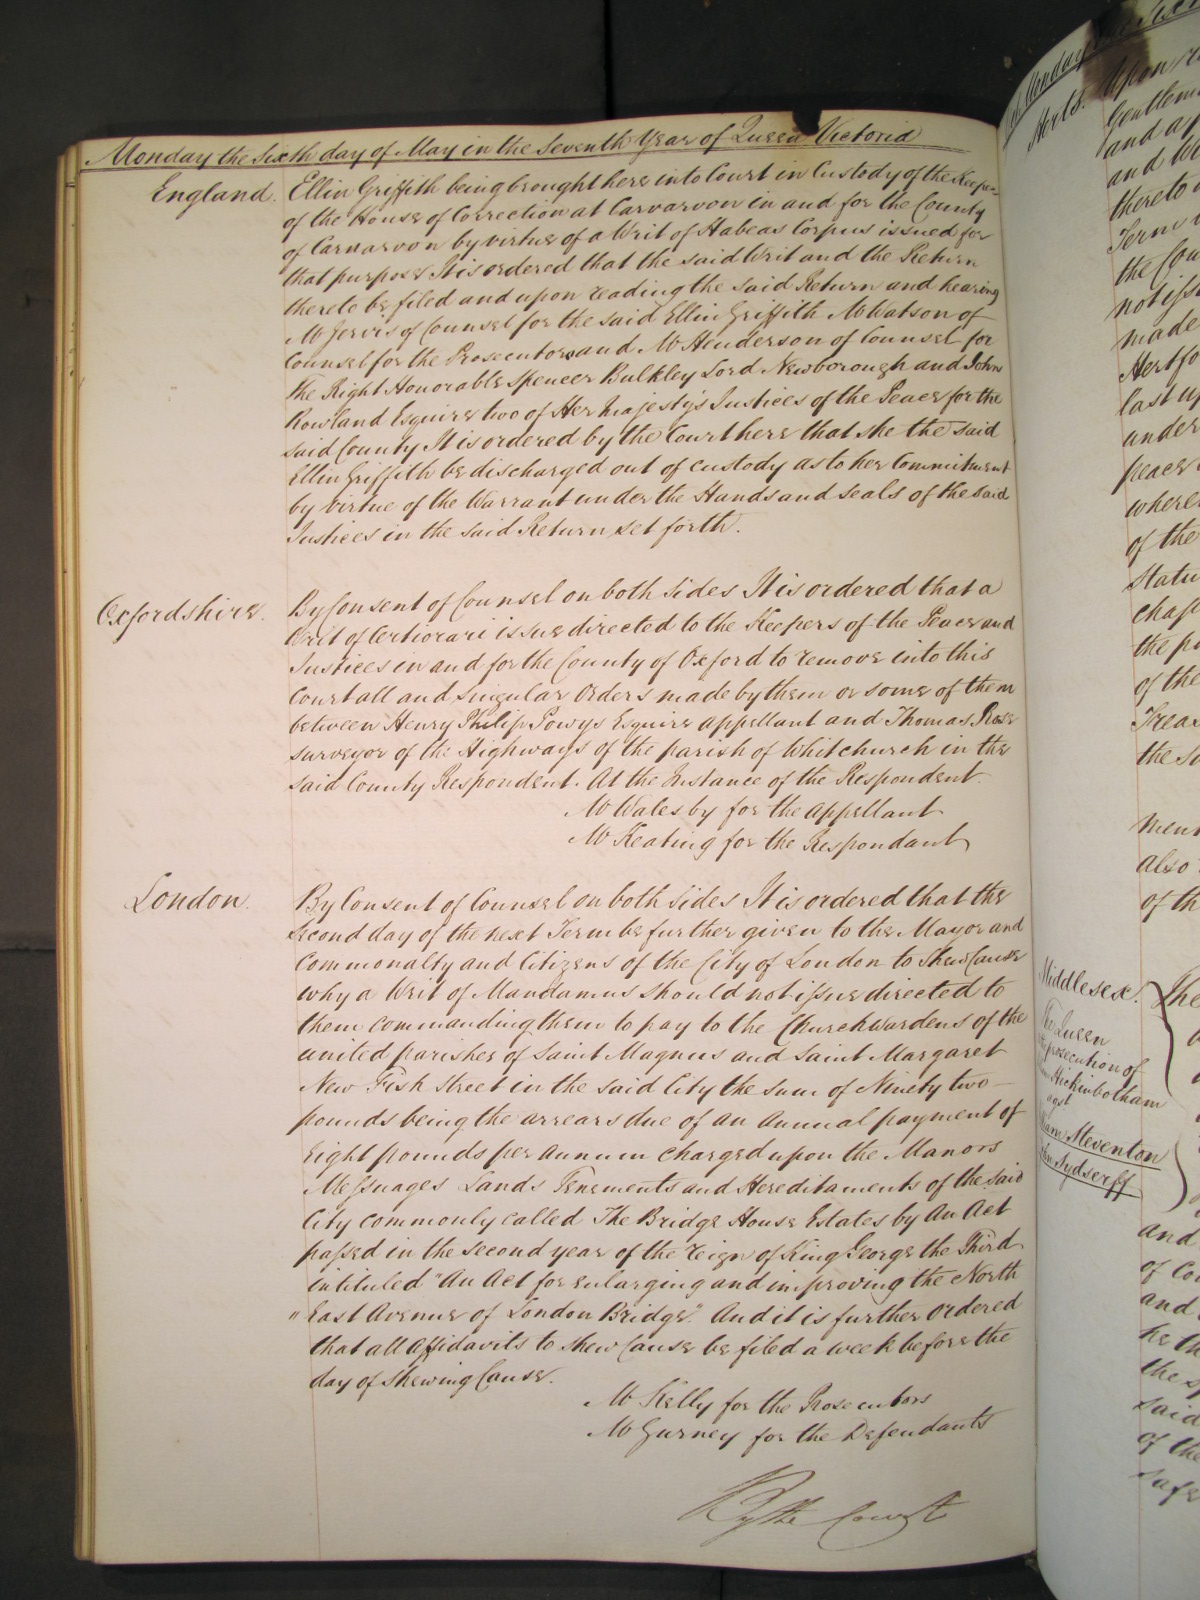 Monday the Sixth day of May in the Seventh Year of Queen Victoria
England. Ellin Griffith being brought here into Court in Custody of the Keeper
of the House of Correction at Carnarvon in and for the County
of Carnarvon by virtue of a Writ of Habeas Corpus issued for
that purpose It is ordered that the said Writ and the Return
thereto be filed and upon reading the said Return and hearing
Mr Jervis of Counsel for the said Ellin Griffith Mr Watson of
Counsel for the Prosecutors and Mr Henderson of Counsel for
the Right Honorable Spencer Bulkley Lord Newborough and John
Rowland Esquire two of Her Majesty's Justices of the Peace for the
said County It is ordered by the Court here that she the said
Ellin Griffith be discharged out of custody as to her Commitment
by virtue of the Warrant under the Hands and Seals of the said
Justices in the said Return set forth.
Oxfordshire. By Consent of Counsel on both sides It is ordered that a
Writ of Certiorari issue directed to the Keepers of the Peace and
Justices in and for the County of Oxford to remove into this
Court all and singular Orders made by them or some of them
between Henry Philip Powys Esquire appellant and Thomas Rose
surveyor of the Highways of the parish of Whitchurch in the
said County Respondent. At the Instance of the Respondent.
Mr Walesby for the appellant
Mr Keating for the Respondant
London. By Consent of Counsel on both sides It is ordered that the
second day of the next Term be further given to the Mayor and
Commonalty and Citizens of the City of London to shew Cause
why a Writ of Mandamus should not issue directed to
them commanding them to pay to the Churchwardens of the
united parishes of Saint Magnus and Saint Margaret
New Fish Street in the said City the sum of Ninety two
pounds being the arrears due of an annual payment of
Eight pounds per annum charged upon the Manors
Messuages Lands Tenements and Hereditaments of the said
City commonly called The Bridge House Estates by An Act
passed in the second year of the reign of King George the Third
intituled "An Act for enlarging and improving the North
"East Avenue of London Bridge" And it is further ordered
that all affidavits to shew Cause be filed a week before the
day of shewing Cause.
Mr Kelly for the Prosecutors
Mr Gurney for the Defendants
By the Court
Monday the
Herts. Upon
Gentlem
and a p
and W
thereto
Term
the Cou
not iss
made
Hertfo
last up
under
peace
where
of the
Statu
chap
the p
of the
Treas
the s
men
also
of th
Middlesex. The
The Queen
prosecution of
Hickinbotham
agst
Steventon
Sydserff
and
of Co
and
he th
the sp
said
of the
safe